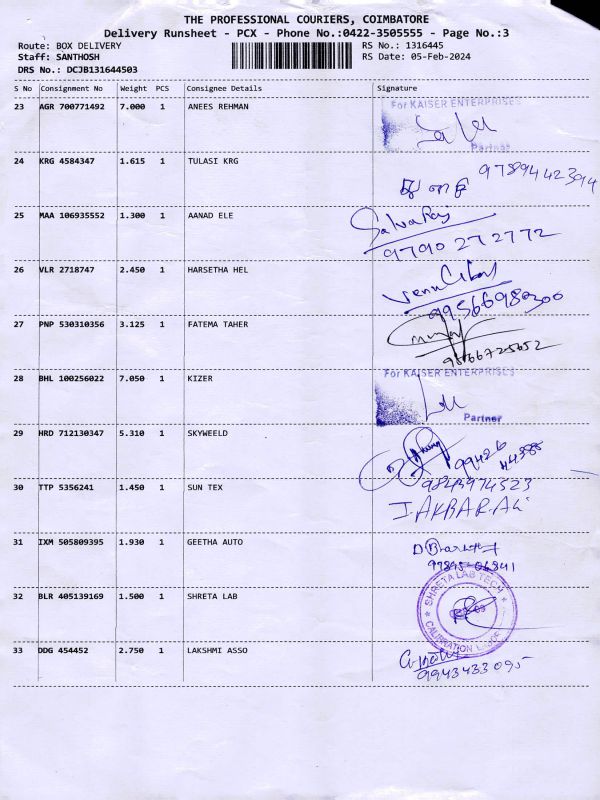 THE PROFESSIONAL COURIERS, COIMBATORE
Delivery Runsheet - PCX - Phone No.:0422-3505555 - Page No.:3
Route: BOX DELIVERY RS No.: 1316445
Staff: SANTHOSH RS Date: 05-Feb-2024
DRS No.: DCJB131644503
S No Consignment No Weight PCS Consignee Details Signature
23 AGR 700771492 7.000 1 ANEES REHMAN
For KAISER ENTERPRISES
Partner
24 KRG 4584347 1.615 1 TULASI KRG
9789442394
25 MAA 106935552 1.300 1 AANAD ELE
Selvaraj
9790272772
26 VLR 2718747 2.450 1 HARSETHA HEL
9956698300
27 PNP 530310356 3.125 1 FATEMA TAHER
9566725652
28 BHL 100256022 7.050 1 KIZER
For KAISER ENTERPRISES
Partner
29 HRD 712130347 5.310 1 SKYWEELD
99426
44885
30 TTP 5356241 1.450 1 SUN TEX
9843974523
I.AKBAR.ALi
31 IXM 505809395 1.930 1 GEETHA AUTO
97895-06841
32 BLR 405139169 1.500 1 SHRETA LAB
SHRETA LAB TECH
33 DDG 454452 2.750 1 LAKSHMI ASSO
9943433095